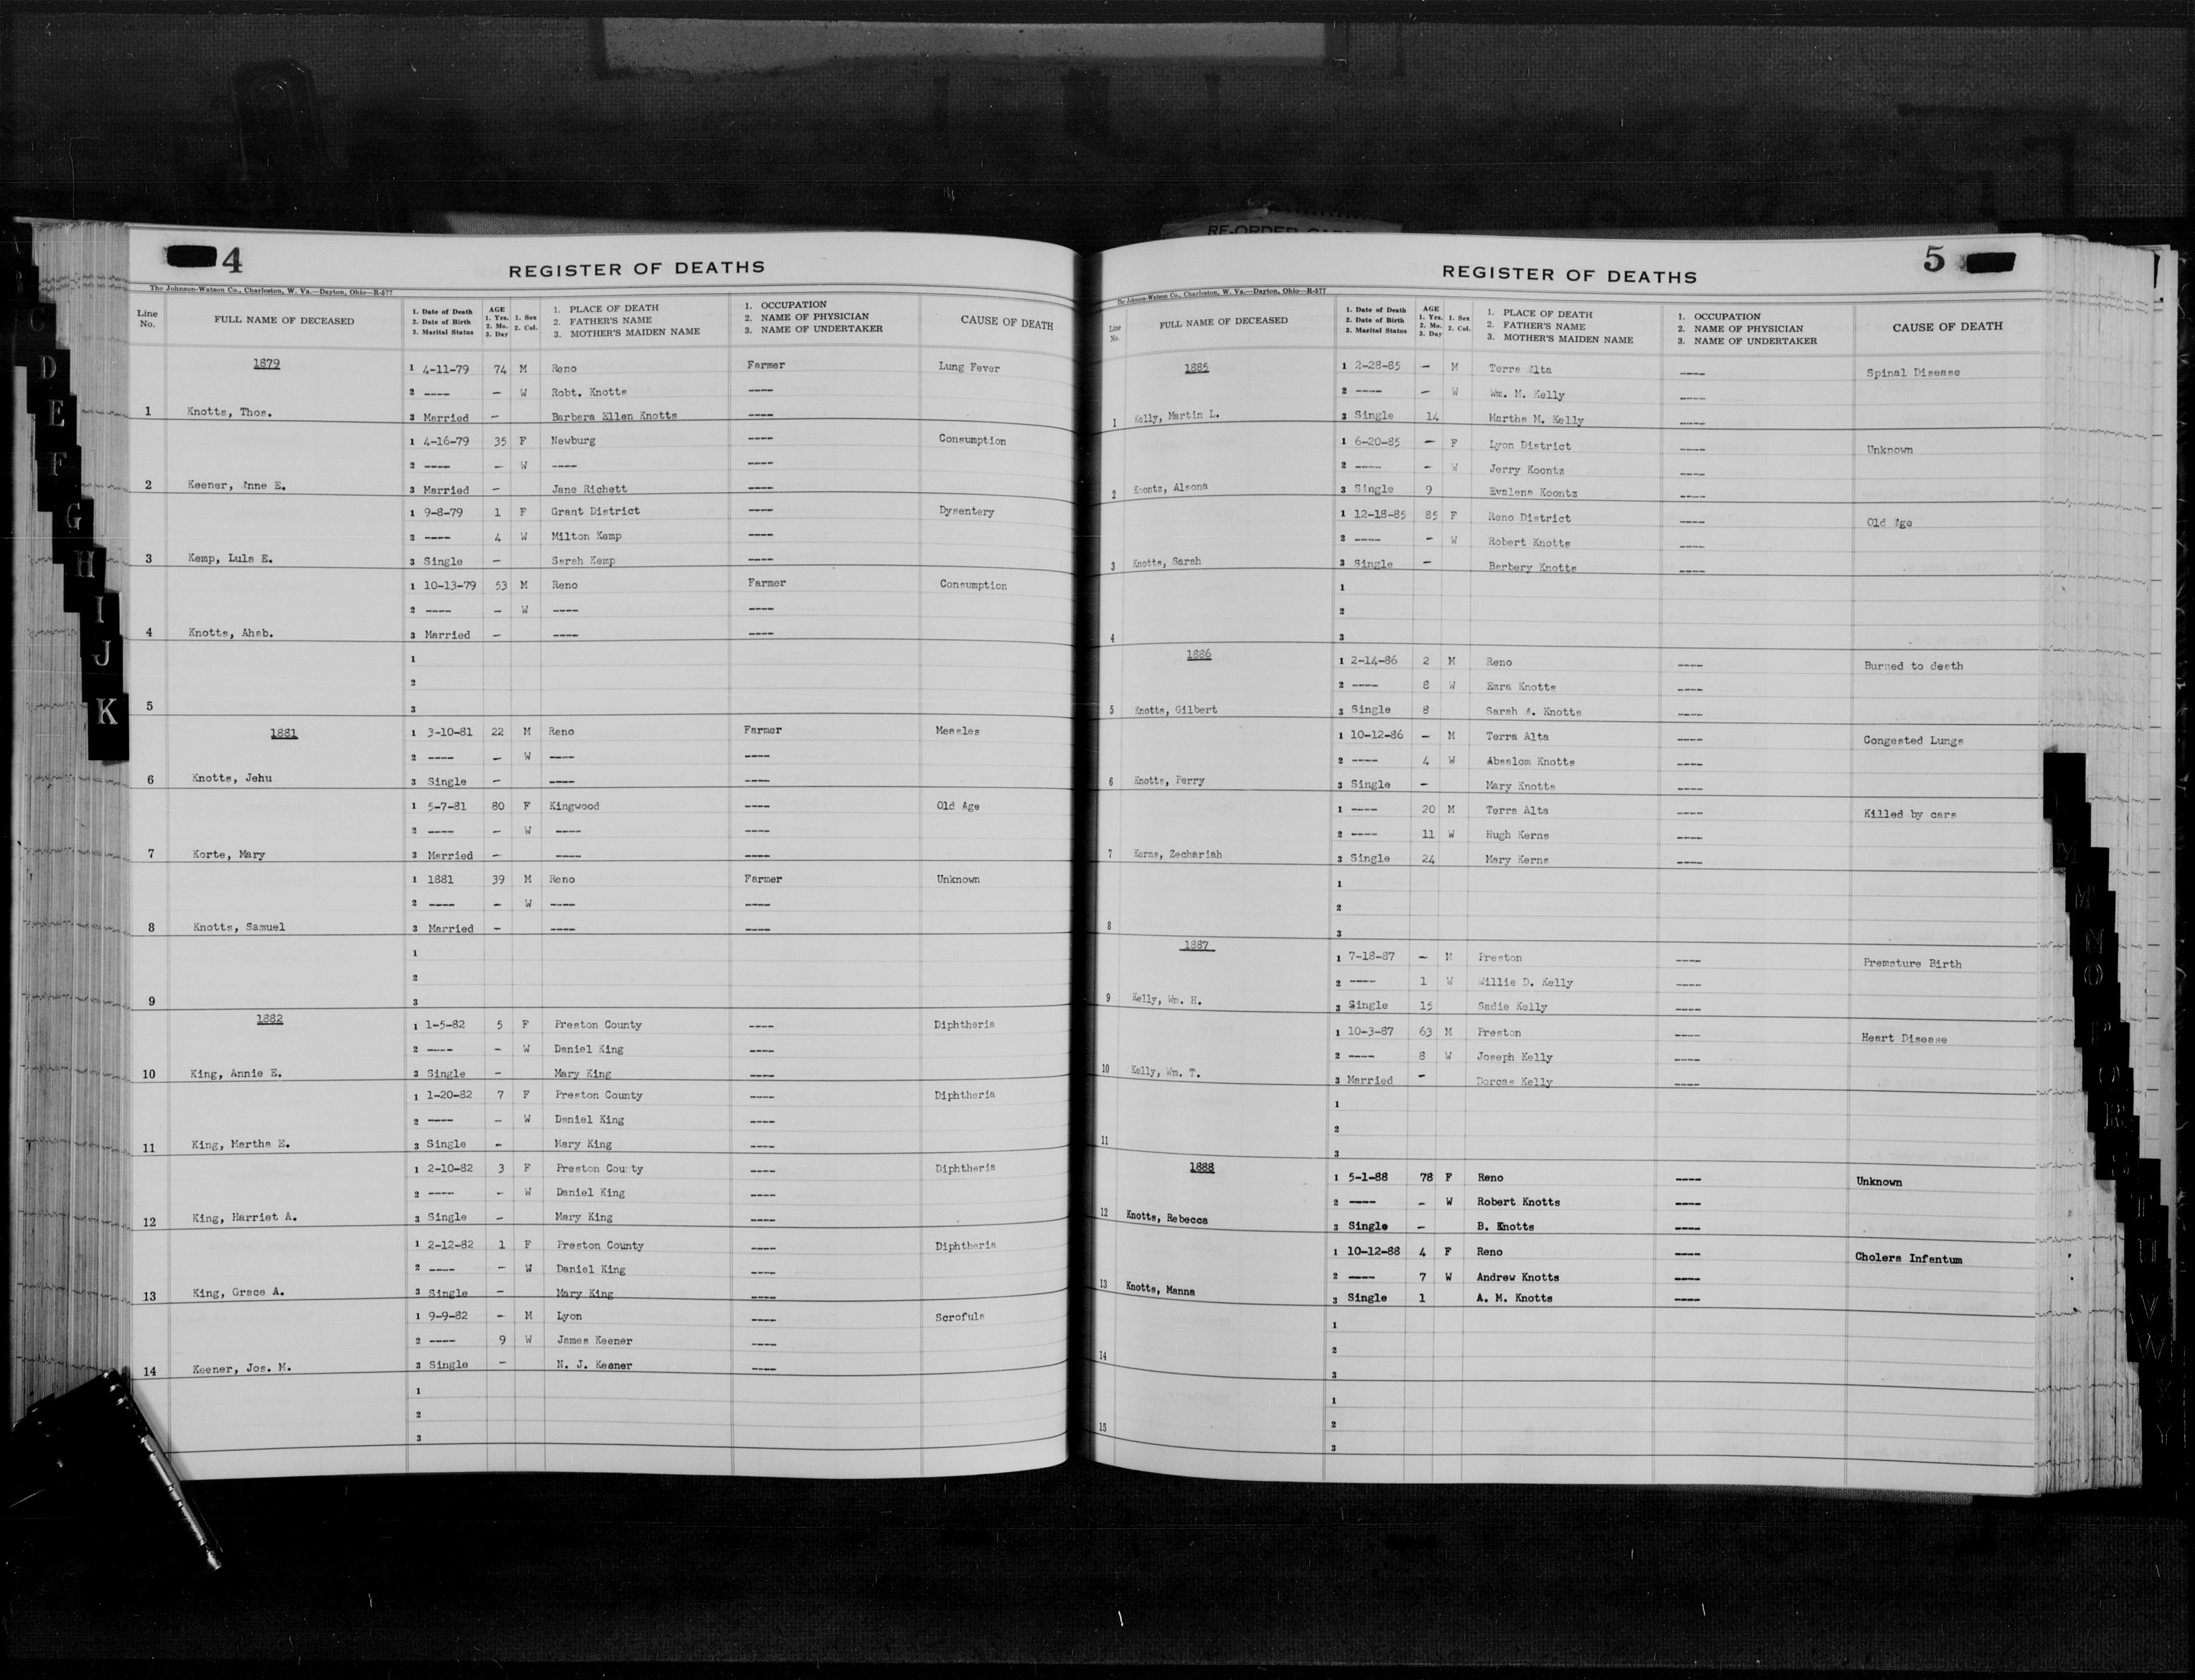 RE-ORDER CARD
4
REGISTER OF DEATHS
The Johnson-Watson Co., Charleston, W. Va.—Dayton, Ohio—R-577
Line No. FULL NAME OF DECEASED 1. Date of Death 2. Date of Birth 3. Marital Status AGE 1. Yrs. 2. Mo. 3. Day 1. Sex 2. Col. 1. PLACE OF DEATH 2. FATHER'S NAME 3. MOTHER'S MAIDEN NAME 1. OCCUPATION 2. NAME OF PHYSICIAN 3. NAME OF UNDERTAKER CAUSE OF DEATH
1879 1 4-11-79 74 M Reno Farmer Lung Fever
2 ---- - W Robt. Knotts ----
1 Knotts, Thos. 3 Married - Barbara Ellen Knotts ----
1 4-16-79 35 F Newburg ---- Consumption
2 ---- - W ---- ----
2 Keener, Anne E. 3 Married - Jane Richett ----
1 9-8-79 1 F Grant District ---- Dysentery
2 ---- 4 W Milton Kemp ----
3 Kemp, Lula E. 3 Single - Sarah Kemp ----
1 10-13-79 53 M Reno Farmer Consumption
2 ---- - W ---- ----
4 Knotts, Ahab. 3 Married - ---- ----
1
2
5 3
1881 1 3-10-81 22 M Reno Farmer Measles
2 ---- - W ---- ----
6 Knotts, Jehu 3 Single - ---- ----
1 5-7-81 80 F Kingwood ---- Old Age
2 ---- - W ---- ----
7 Korte, Mary 3 Married - ---- ----
1 1881 39 M Reno Farmer Unknown
2 ---- - W ---- ----
8 Knotts, Samuel 3 Married - ---- ----
1
2
9 3
1882 1 1-5-82 5 F Preston County ---- Diphtheria
2 ---- - W Daniel King ----
10 King, Annie E. 3 Single - Mary King ----
1 1-20-82 7 F Preston County Diphtheria
2 ---- - W Daniel King ----
11 King, Martha E. 3 Single - Mary King ----
1 2-10-82 3 F Preston County ---- Diphtheria
2 ---- - W Daniel King ----
12 King, Harriet A. 3 Single - Mary King ----
1 2-12-82 1 F Preston County ---- Diphtheria
2 ---- - W Daniel King ----
13 King, Grace A. 3 Single - Mary King ----
1 9-9-82 - M Lyon ---- Scrofula
2 ---- 9 W James Keener ----
14 Keener, Jos. M. 3 Single - N. J. Keener ----
1
2
3
5
REGISTER OF DEATHS
The Johnson-Watson Co., Charleston, W. Va.—Dayton, Ohio—R-577
Line No. FULL NAME OF DECEASED 1. Date of Death 2. Date of Birth 3. Marital Status AGE 1. Yrs. 2. Mo. 3. Day 1. Sex 2. Col. 1. PLACE OF DEATH 2. FATHER'S NAME 3. MOTHER'S MAIDEN NAME 1. OCCUPATION 2. NAME OF PHYSICIAN 3. NAME OF UNDERTAKER CAUSE OF DEATH
1885 1 2-28-85 - M Terra Alta ---- Spinal Disease
2 ---- - W Wm. M. Kelly ----
1 Kelly, Martin L. 3 Single 14 Martha M. Kelly ----
1 6-20-85 - F Lyon District ---- Unknown
2 ---- - W Jerry Koontz ----
2 Koontz, Alsona 3 Single 9 Evalena Koontz ----
1 12-18-85 85 F Reno District ---- Old Age
2 ---- - W Robert Knotts ----
3 Knotts, Sarah 3 Single - Barbery Knotts ----
1
2
4 3
1886 1 2-14-86 2 M Reno ---- Burned to death
2 ---- 8 W Ezra Knotts ----
5 Knotts, Gilbert 3 Single 8 Sarah A. Knotts ----
1 10-12-86 - M Terra Alta ---- Congested Lungs
2 ---- 4 W Absalom Knotts ----
6 Knotts, Perry 3 Single - Mary Knotts ----
1 ---- 20 M Terra Alta ---- Killed by cars
2 ---- 11 W Hugh Kerns ----
7 Kerns, Zechariah 3 Single 24 Mary Kerns ----
1
2
8 3
1887 1 7-18-87 - M Preston ---- Premature Birth
2 ---- 1 W Willie D. Kelly ----
9 Kelly, Wm. H. 3 Single 15 Sadie Kelly ----
1 10-3-87 63 M Preston ---- Heart Disease
2 ---- 8 W Joseph Kelly ----
10 Kelly, Wm. T. 3 Married - Dorcas Kelly ----
1
2
11 3
1888 1 5-1-88 78 F Reno ---- Unknown
2 ---- - W Robert Knotts ----
12 Knotts, Rebecca 3 Single - B. Knotts ----
1 10-12-88 4 F Reno ---- Cholera Infantum
2 ---- 7 W Andrew Knotts ----
13 Knotts, Manna 3 Single 1 A. M. Knotts ----
1
2
14 3
1
2
15 3
C
D
E
F
G
H
I
J
K
M
M
M
O
P
O
R
S
T
U
V
W
X
Y